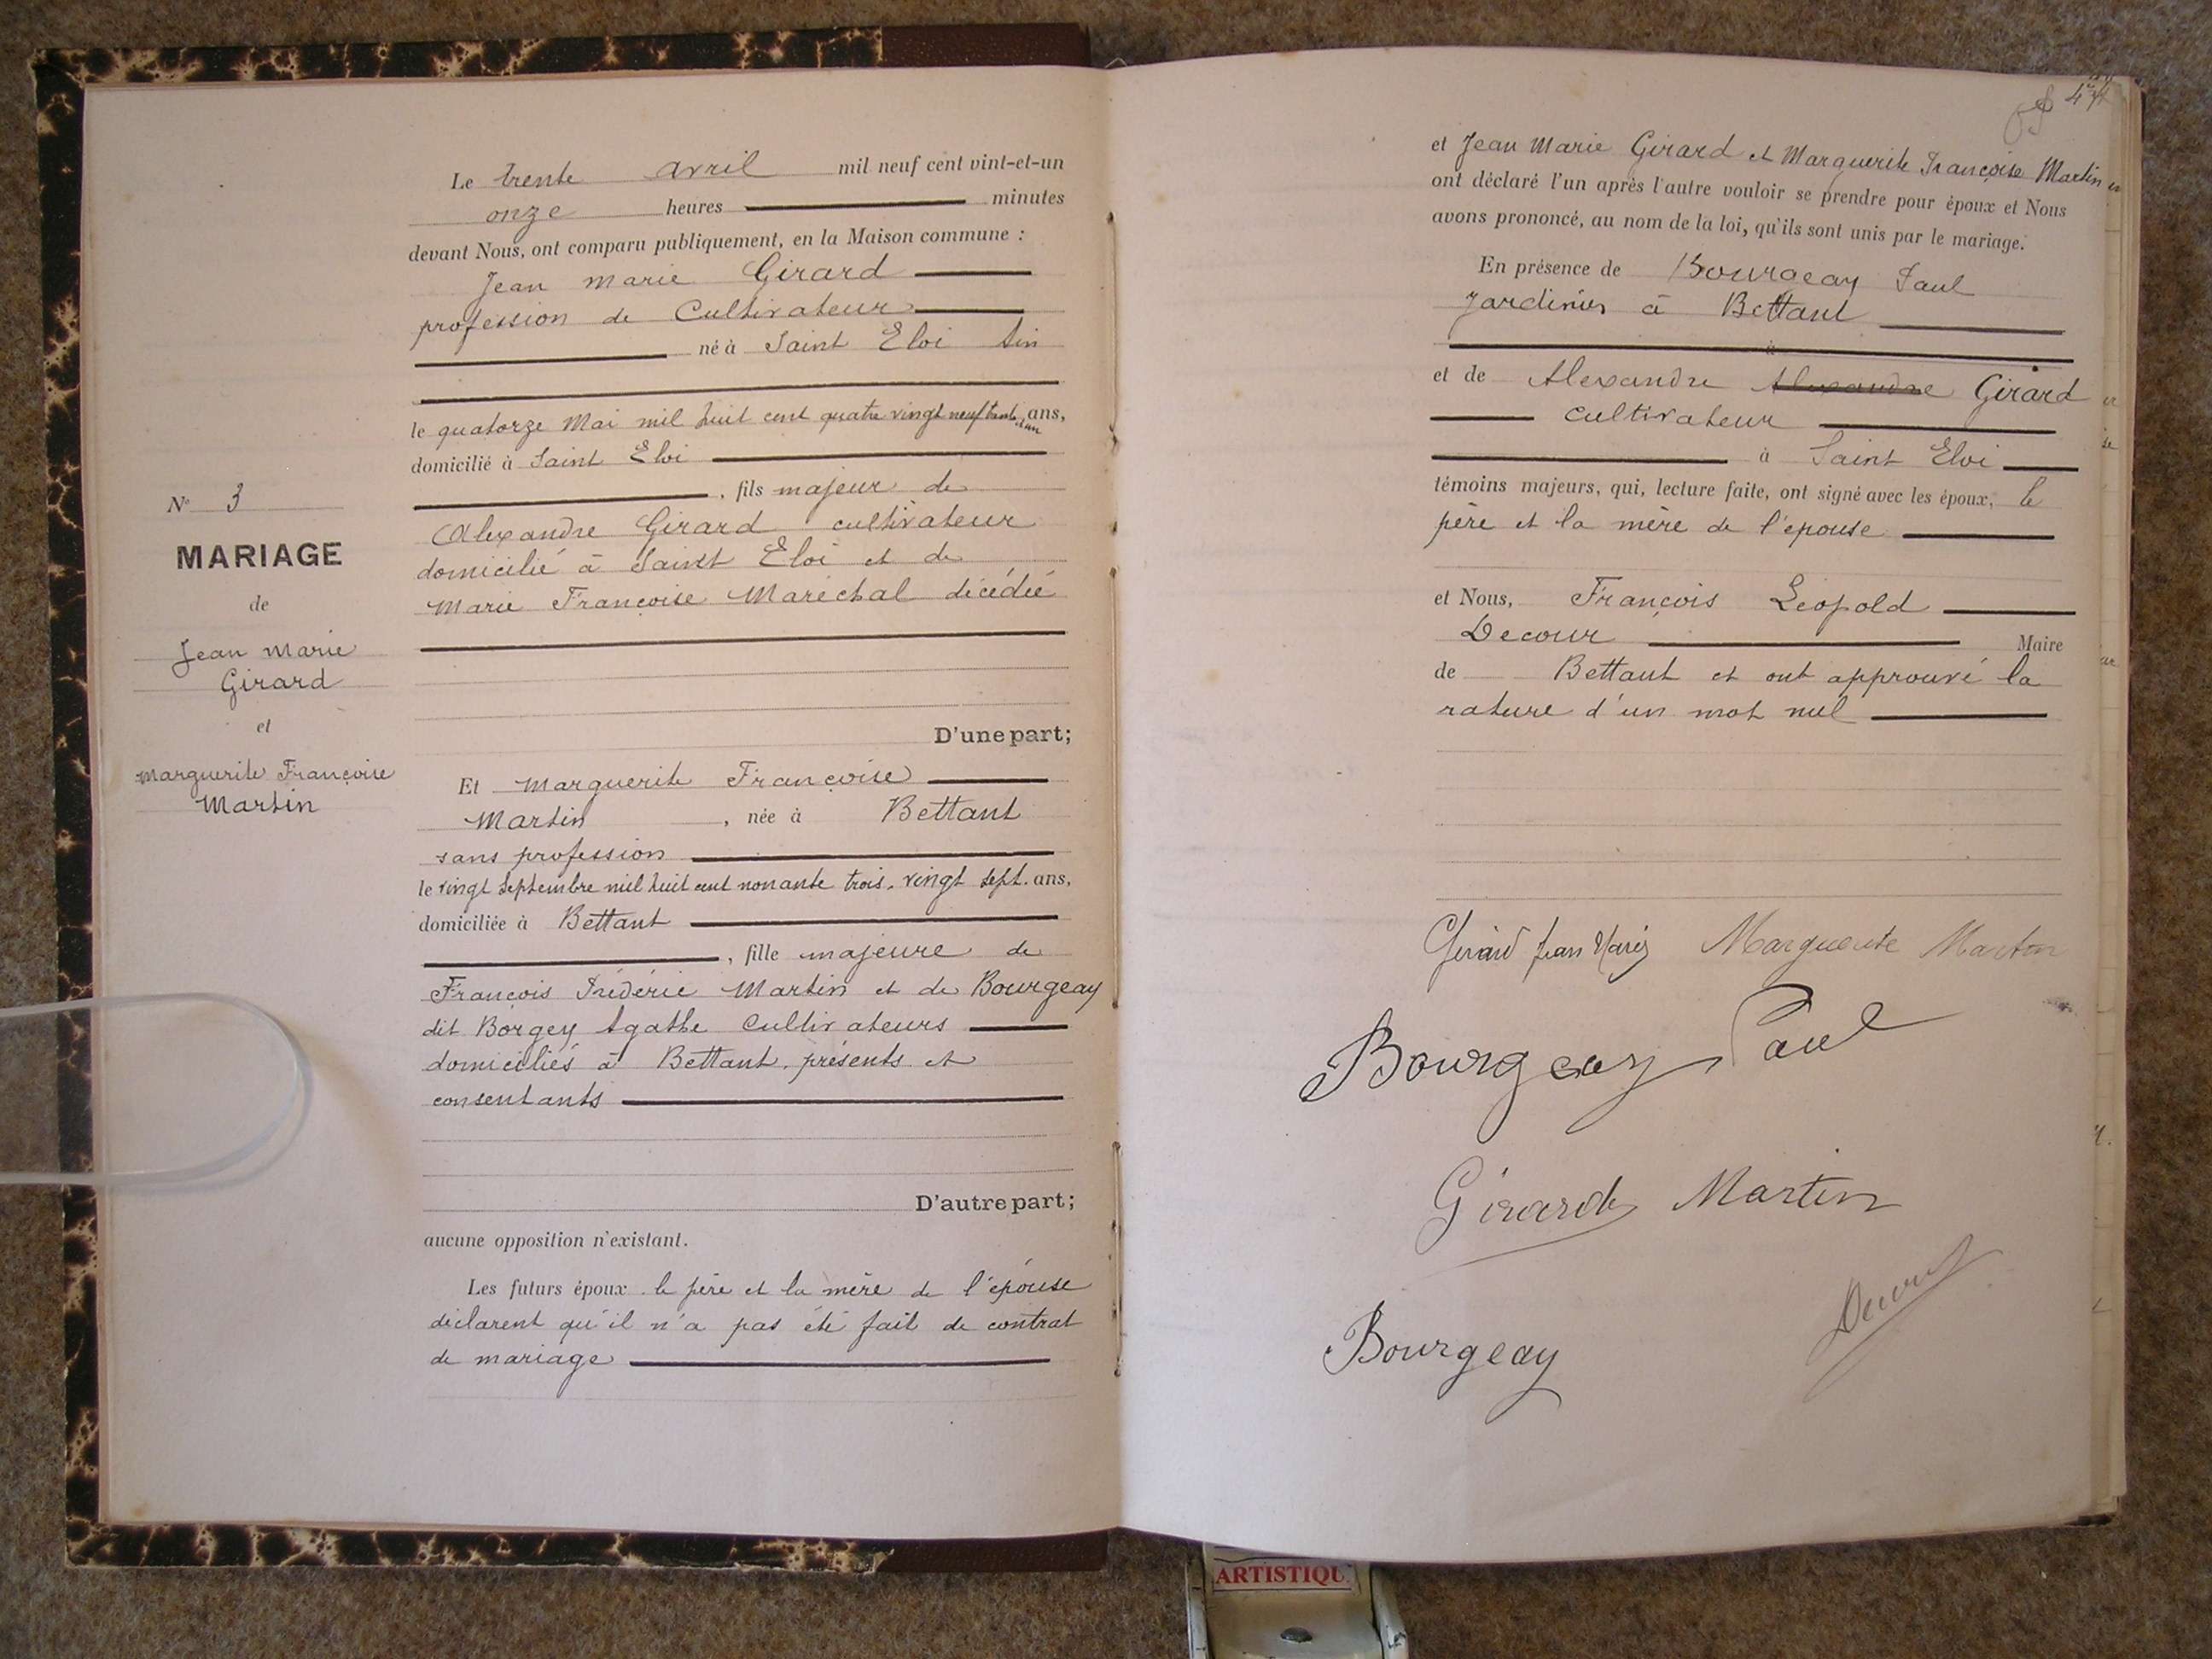 N° 3
MARIAGE
de
Jean Marie
Girard
et
Marguerite Françoise
Martin
Le trente avril mil neuf cent vint-et-un
onze heures minutes
devant Nous, ont comparu publiquement, en la Maison commune :
Jean Marie Girard
profession de Cultivateur
né à Saint Eloi Ain
le quatorze Mai mil huit cent quatre vingt neuf trente et un ans,
domicilié à Saint Eloi
, fils majeur de
Alexandre Girard cultivateur
domicilié à Saint Eloi et de
Marie Françoise Maréchal décédée
D'une part;
Et Marguerite Françoise
Martin , née à Bettant
sans profession
le vingt septembre mil huit cent nonante trois, vingt sept ans,
domiciliée à Bettant
, fille majeure de
François Frédéric Martin et de Bourgeay
dit Borgey Agathe Cultivateurs
domiciliés à Bettant, présents et
consentants
D'autre part;
aucune opposition n'existant.
Les futurs époux le père et la mère de l'épouse
déclarent qu'il n'a pas été fait de contrat
de mariage
et Jean Marie Girard et Marguerite Françoise Martin
ont déclaré l'un après l'autre vouloir se prendre pour époux et Nous
avons prononcé, au nom de la loi, qu'ils sont unis par le mariage.
En présence de Bourgeay Paul
Jardinier à Bettant
à
et de Alexandre Alexandre Girard
cultivateur
à Saint Eloi
témoins majeurs, qui, lecture faite, ont signé avec les époux, le
père et la mère de l'épouse
et Nous, François Léopold
Decour Maire
de Bettant et ont approuvé la
rature d'un mot nul
Girard Jean Marie Marguerite Martin
Bourgeay Paul
Girard Martin
Decour
Bourgeay
ARTISTIQU